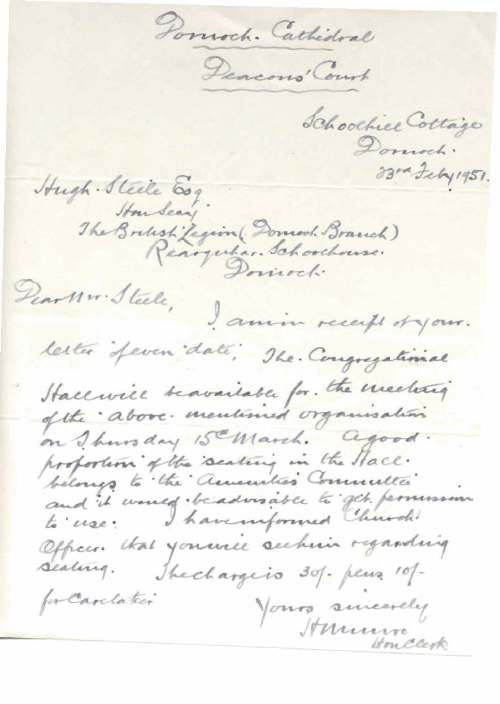 Dornoch Cathedral
Deacons' Court
Schoolhill Cottage
Dornoch.
23rd Feby 1951.
Hugh Steele Esq
Hon Secy
The British Legion (Dornoch Branch)
Rearquhar Schoolhouse.
Dornoch.
Dear Mr. Steele,
I am in receipt of your
letter of even date. The Congregational
Hall will be available for the meeting
of the above mentioned organisation
on Thursday 15th March. A good
proportion of the seating in the Hall
belongs to the Amenities Committee
and it would be advisable to get permission
to use. I have informed Church
Officer that you will see him regarding
seating. The charge is 30/- plus 10/-
for Caretaker
Yours sincerely
H Munro
Hon Clerk